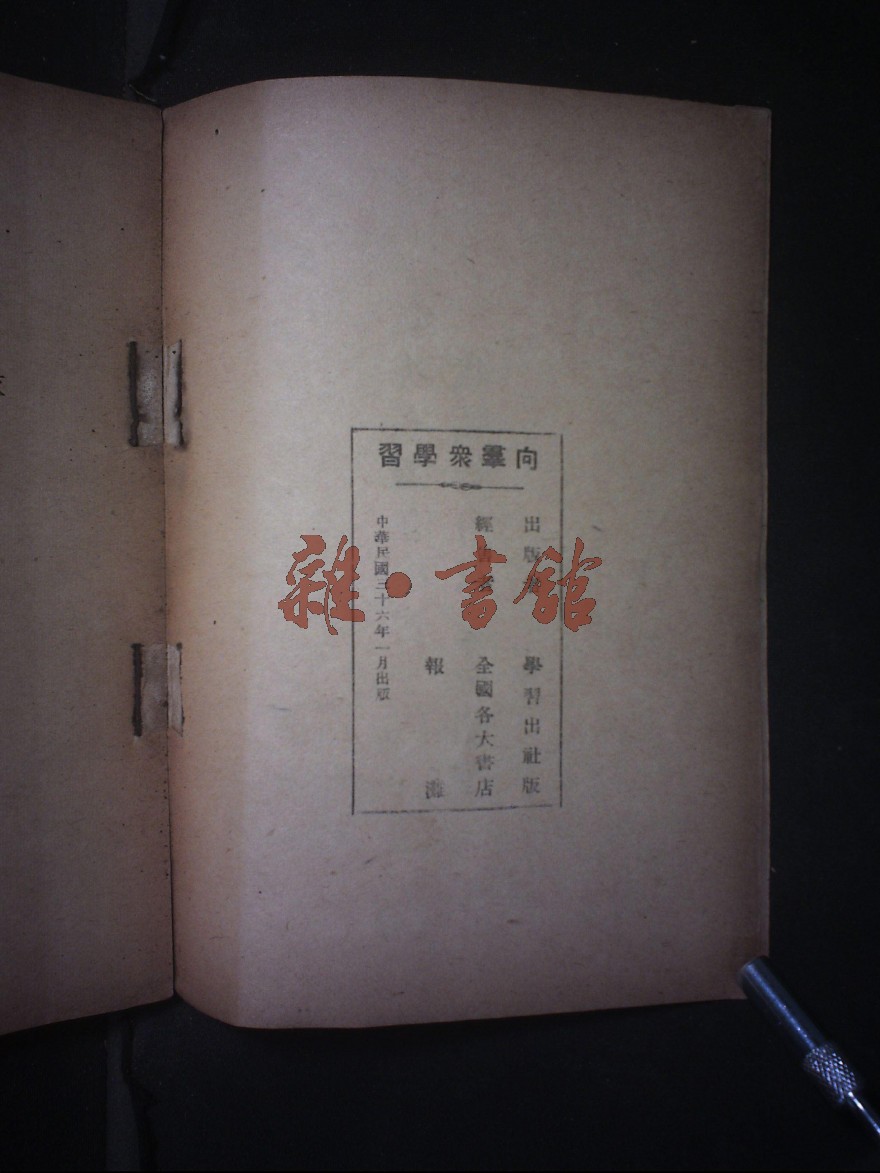 向羣衆學習
出版 學習出社版
經 全國各大書店
報灘
中華民國三十六年一月出版
雜•書館